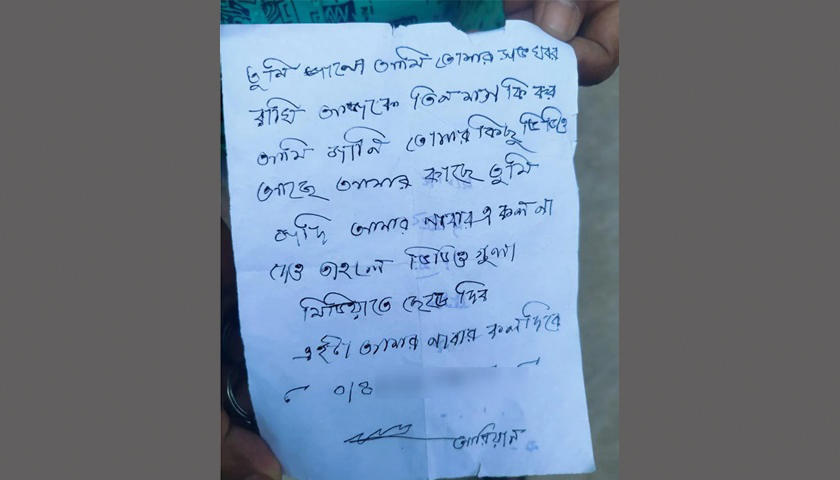 তুমি জানো আমি তোমার সব খবর
রাখি আজকে তিন মাস কি কর
আমি জানি তোমার কিছু ভিডিও
আছে আমার কাছে তুমি
যদি আমার নাম্বার এ কল না
দেও তাহলে ভিডিও গুলা
মিডিয়াতে ছেড়ে দিব
এইটা আমার নাম্বার কল দিবে
০১৪
আরিয়ান